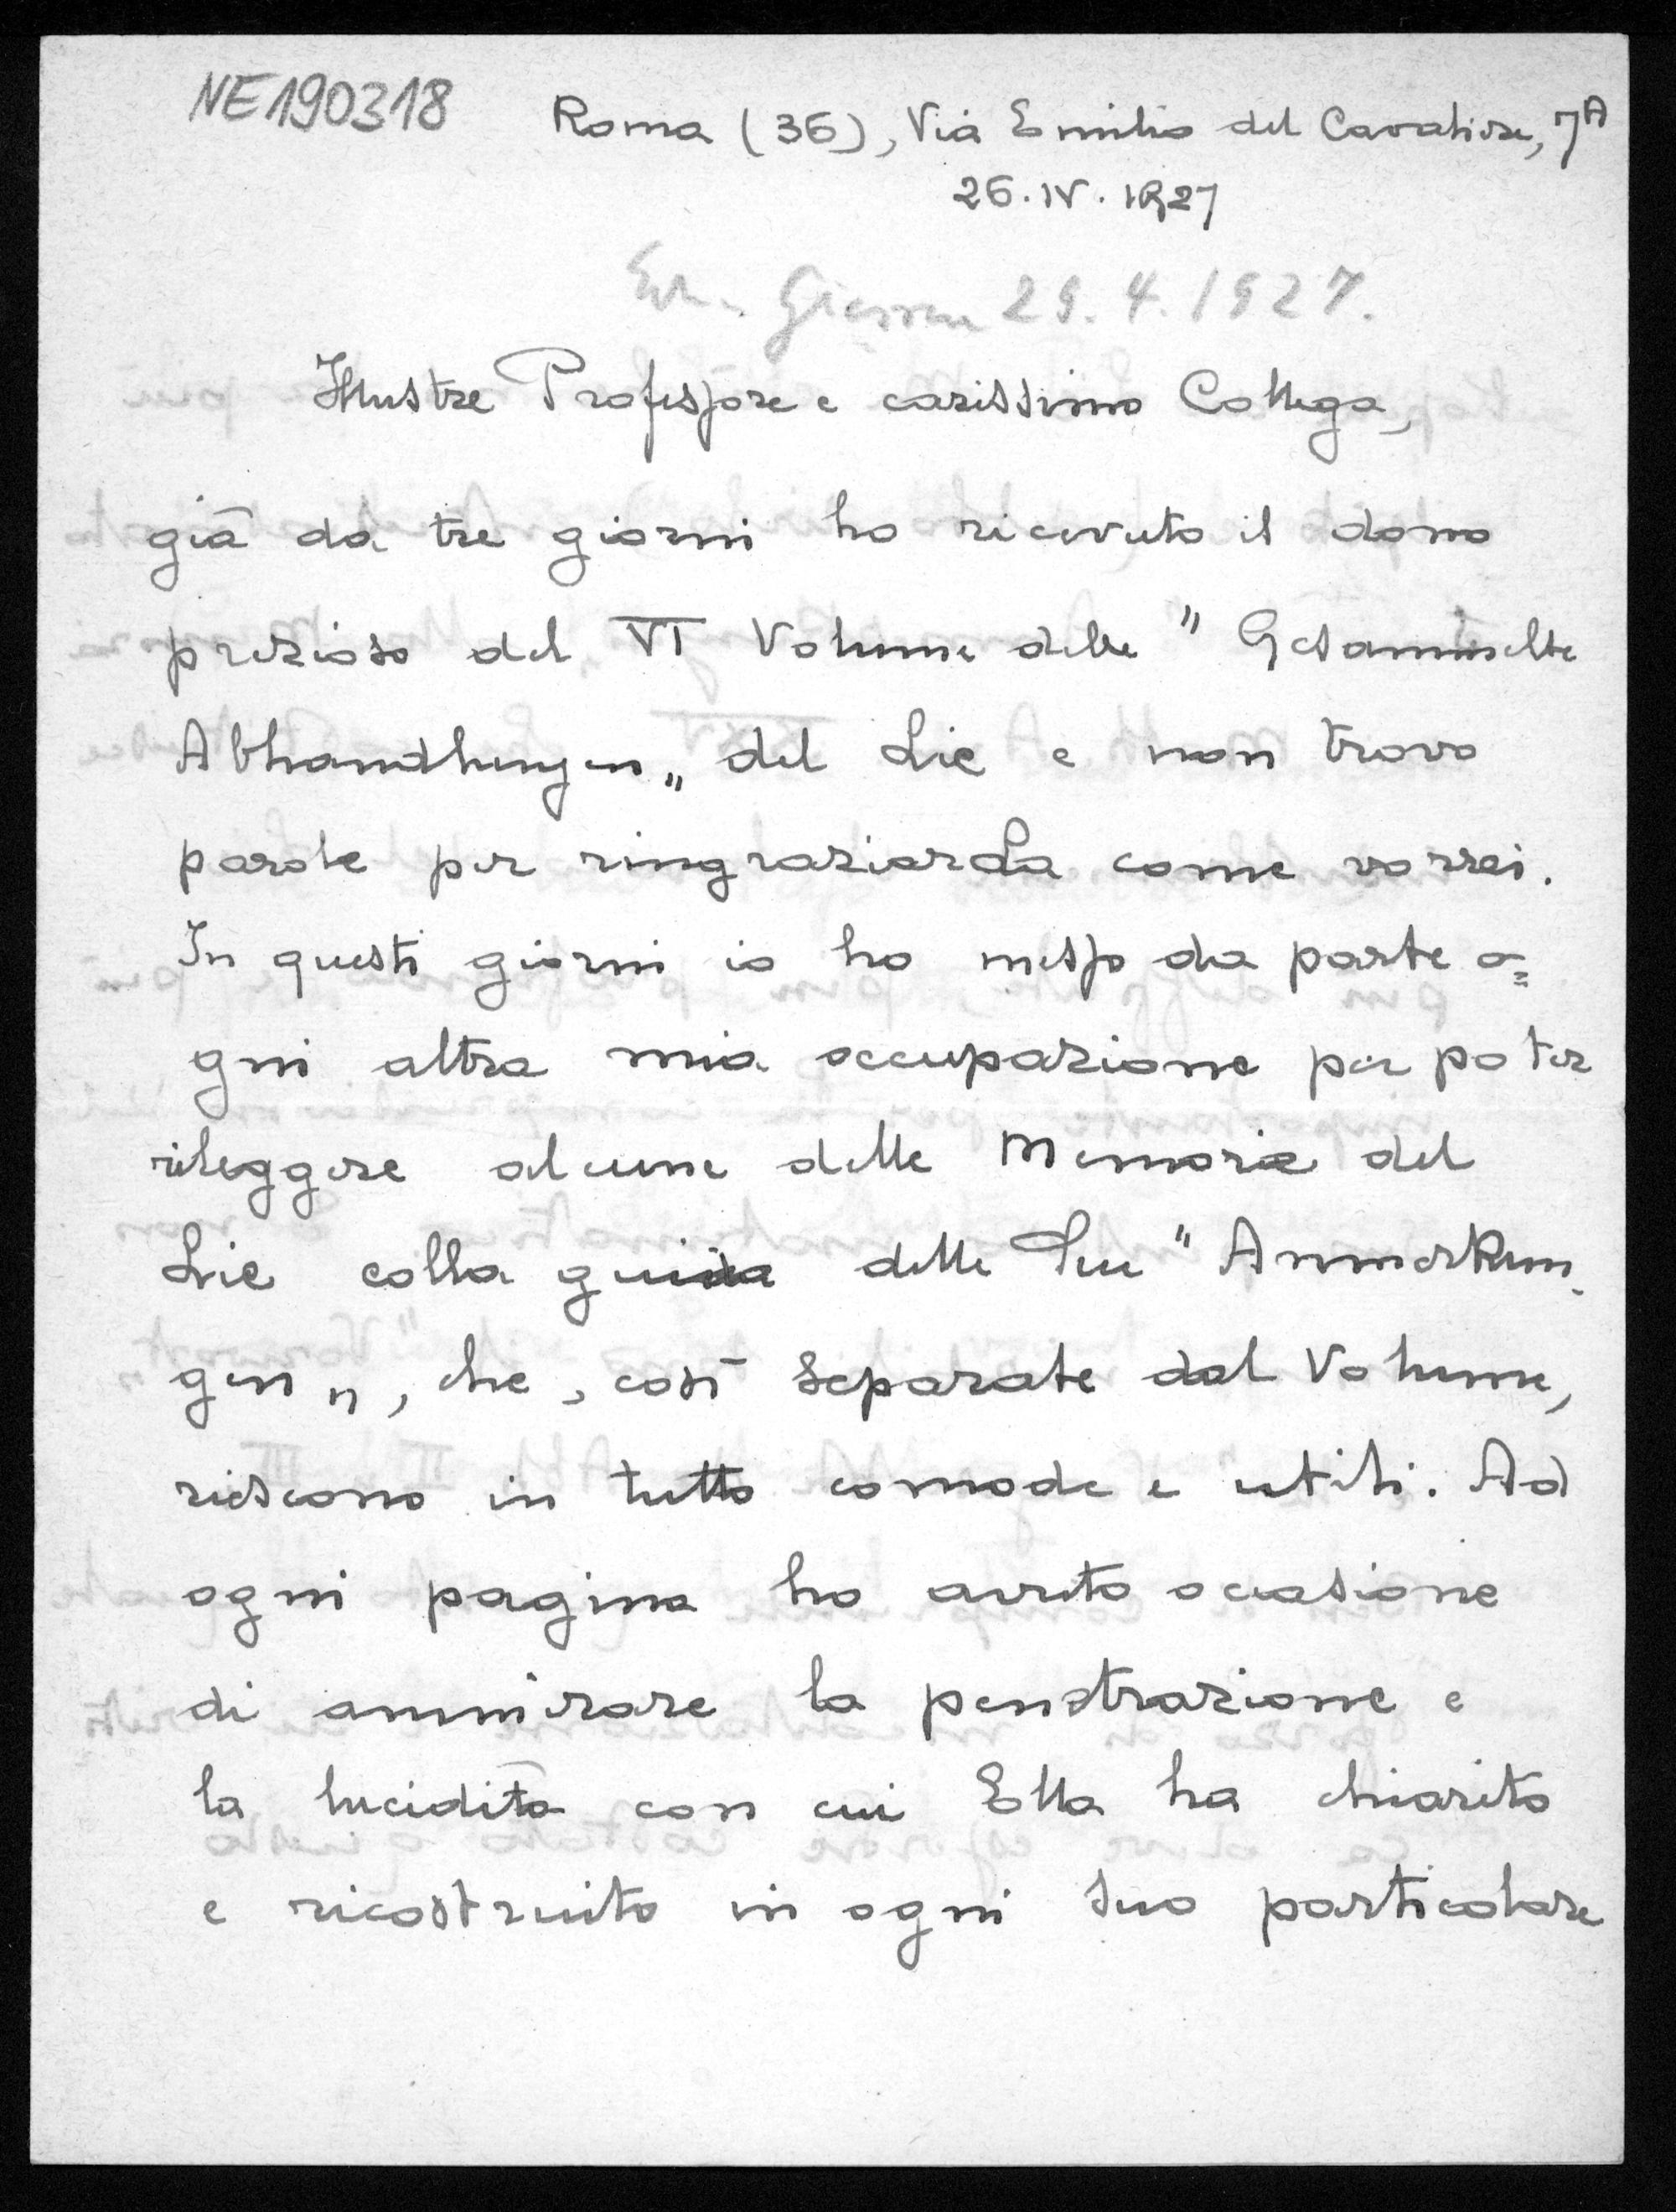 NE190318
Roma (36), Via Emilio del Cavaliere, 7A
26.IV.1927
Giessen 29.4.1927.
Illustre Professore e carissimo Collega,
già da tre giorni ho ricevuto il dono
prezioso del VI Volume delle "Gesammelte
Abhandlungen„ del Lie e non trovo
parole per ringraziarLa come vorrei.
In questi giorni io ho messo da parte o=
gni altra mia occupazione per poter
rileggere alcune delle Memorie del
Lie colla guida delle Sue "Anmerkun-
gen„, che, così separate dal Volume,
riescono in tutto comode e utili. Ad
ogni pagina ho avuto occasione
di ammirare la penetrazione e
la lucidità con cui Ella ha chiarito
e ricostruito in ogni suo particolare